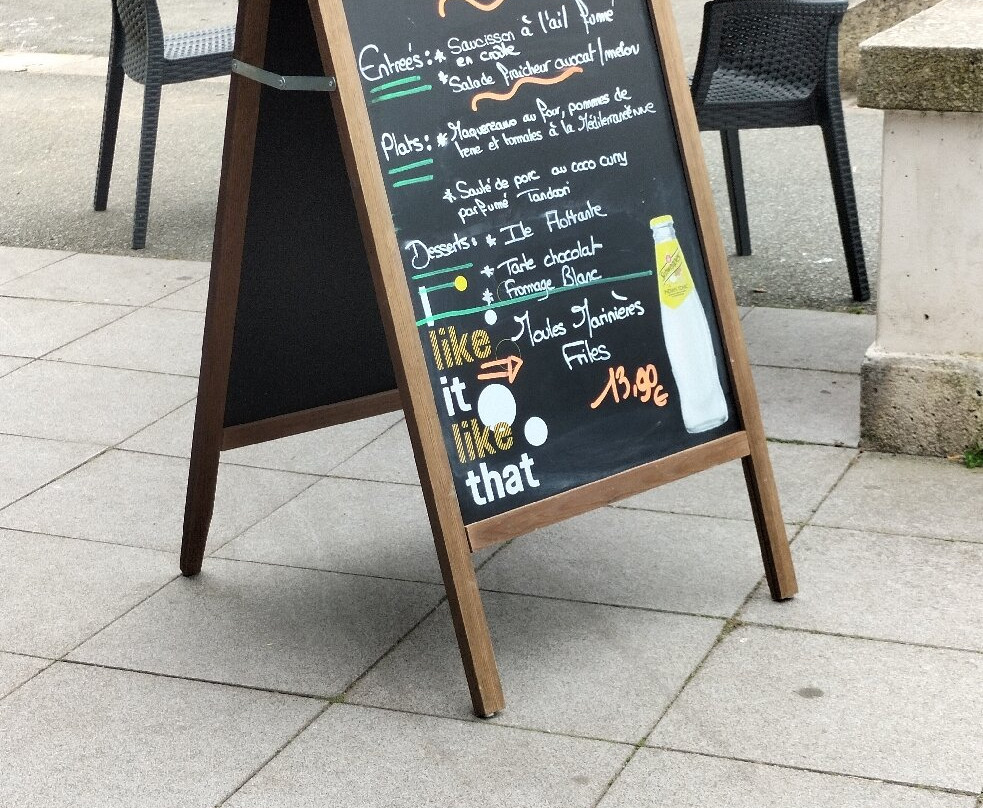 Entrées : * Saucisson à l'ail fumé
en croûte
* Salade fraicheur avocat / melon
Plats : * Maquereaux au four, pommes de
terre et tomates à la Méditerranéenne
* Sauté de porc au coco curry
parfumé Tandoori
Desserts : * Ile Flottante
* Tarte chocolat
* Fromage Blanc
Moules Marinières
Frites
13,90€
I
like
it
like
that
Schweppes